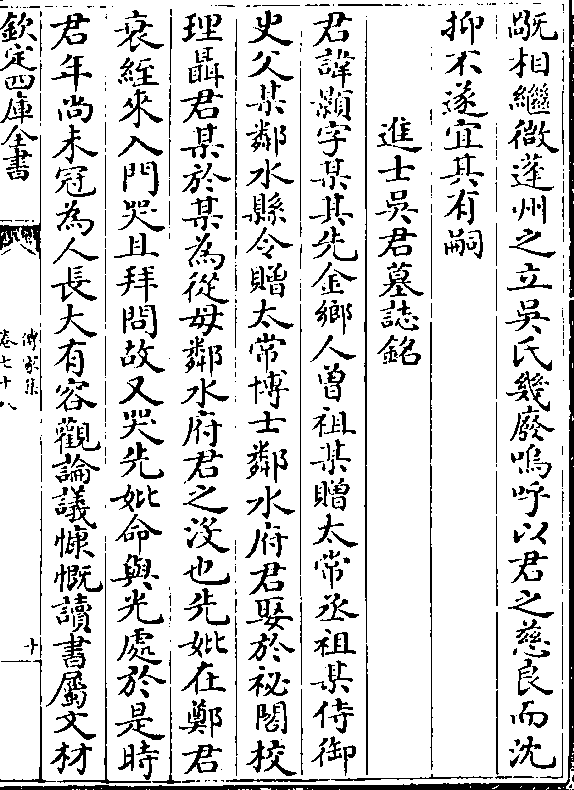 既相繼微蓬州之立吳氏幾廢嗚呼以君之慈良而沈
抑不遂宜其有嗣
進士吳君墓誌銘
君諱顥字某其先金鄉人曾祖某贈太常丞祖某侍御
史父某鄰水縣令贈太常博士鄰水府君娶於祕閣校
理聶君某於某為從母鄰水府君之沒也先妣在鄭君
衰絰來入門哭且拜問故又哭先妣命與光處於是時
君年尚未冠為人長大有容觀論議慷慨讀書屬文材
欽定四庫全書
傳家集
卷七十八
十